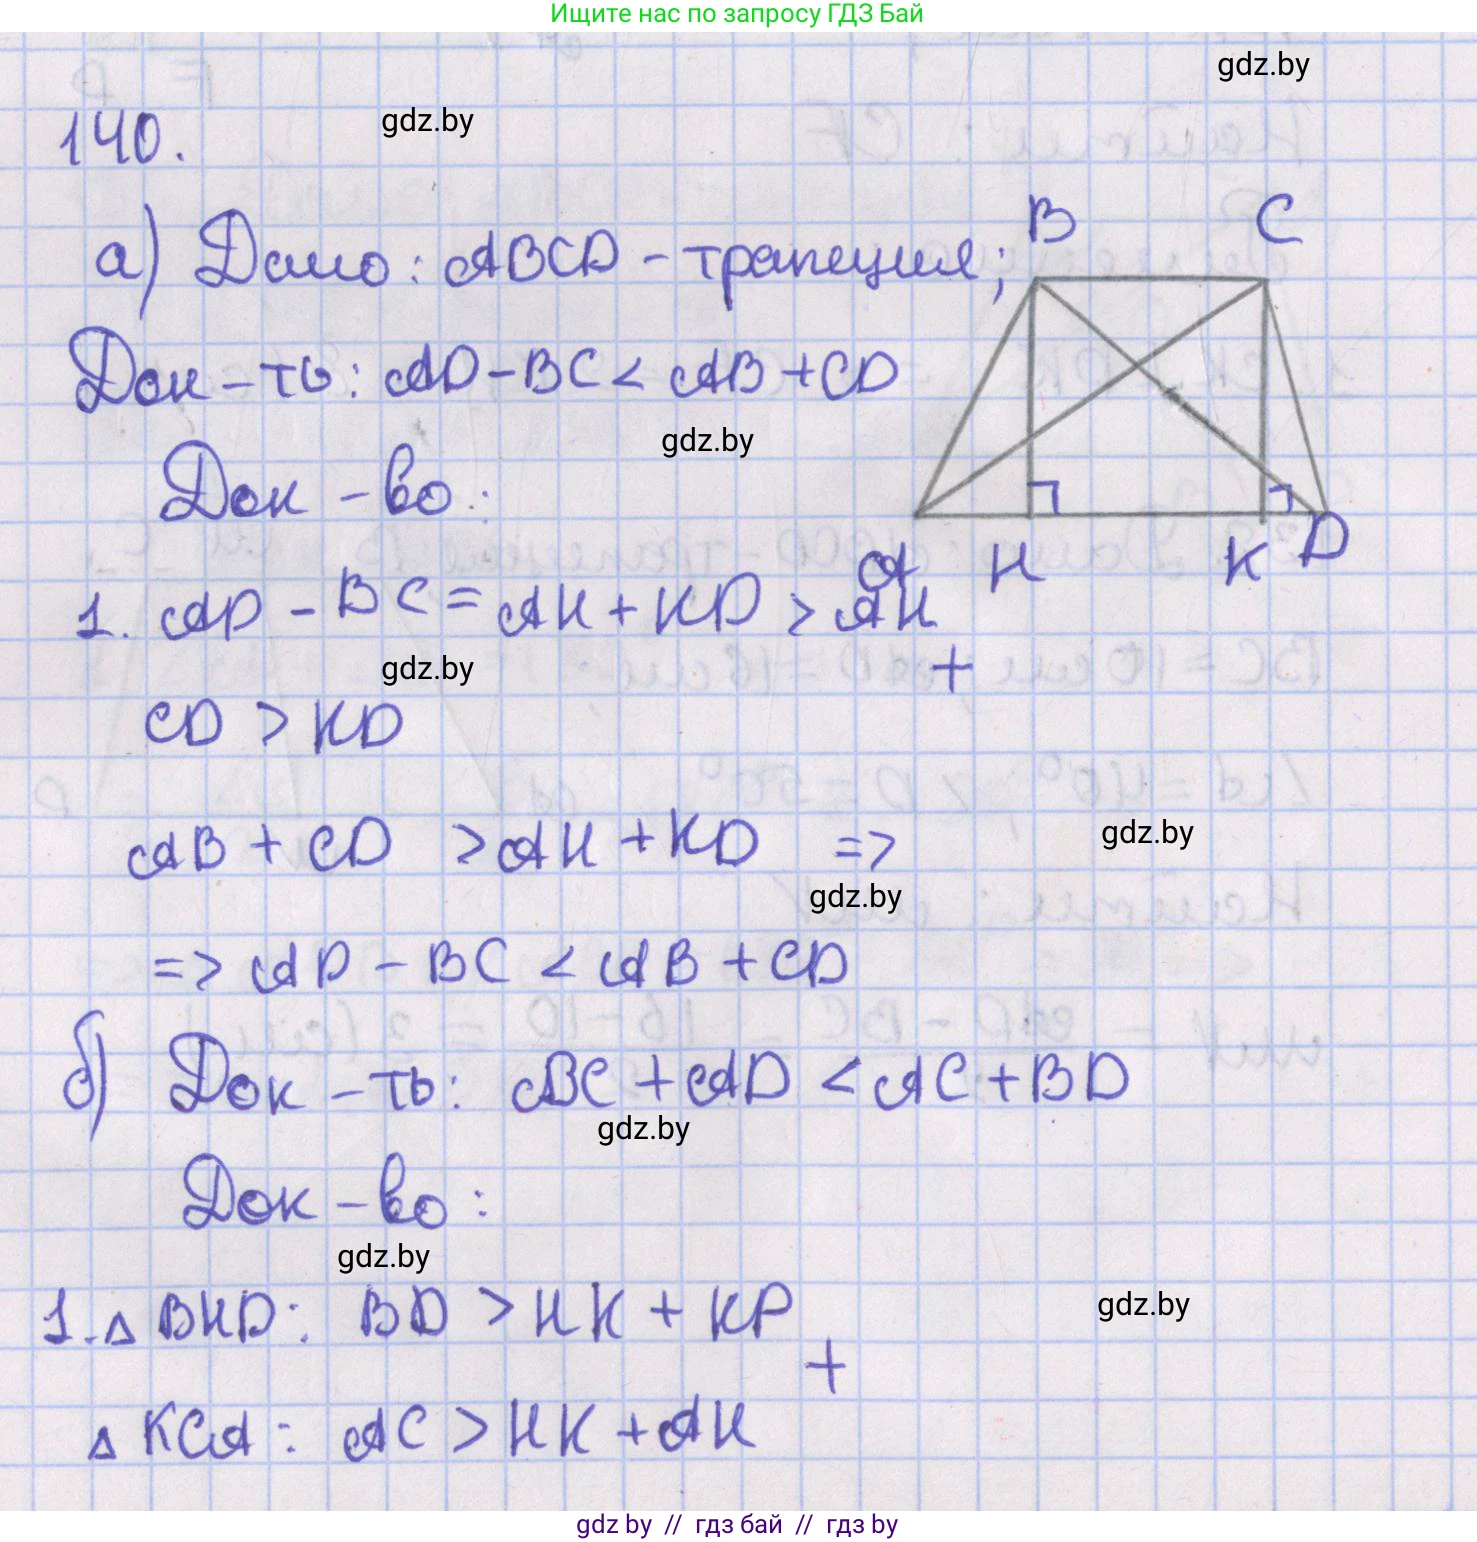 Ищите нас по запросу ГДЗ Бай
gdz.by
gdz.by
140.
B C
а) Дано: ABCD - трапеция;
Док-ть: AD - BC < AB + CD
gdz.by
Док-во:
A H K D
1. AD - BC = AH + KD > AH
gdz.by
+
CD > KD
gdz.by
AB + CD > AH + KD =>
gdz.by
=> AD - BC < AB + CD
б) Док-ть: BC + AD < AC + BD
gdz.by
Док-во:
gdz.by
1. △ BHD: BD > HK + KP
gdz.by
+
△ KCA: AC > HK + AH
gdz by // гдз бай // гдз by